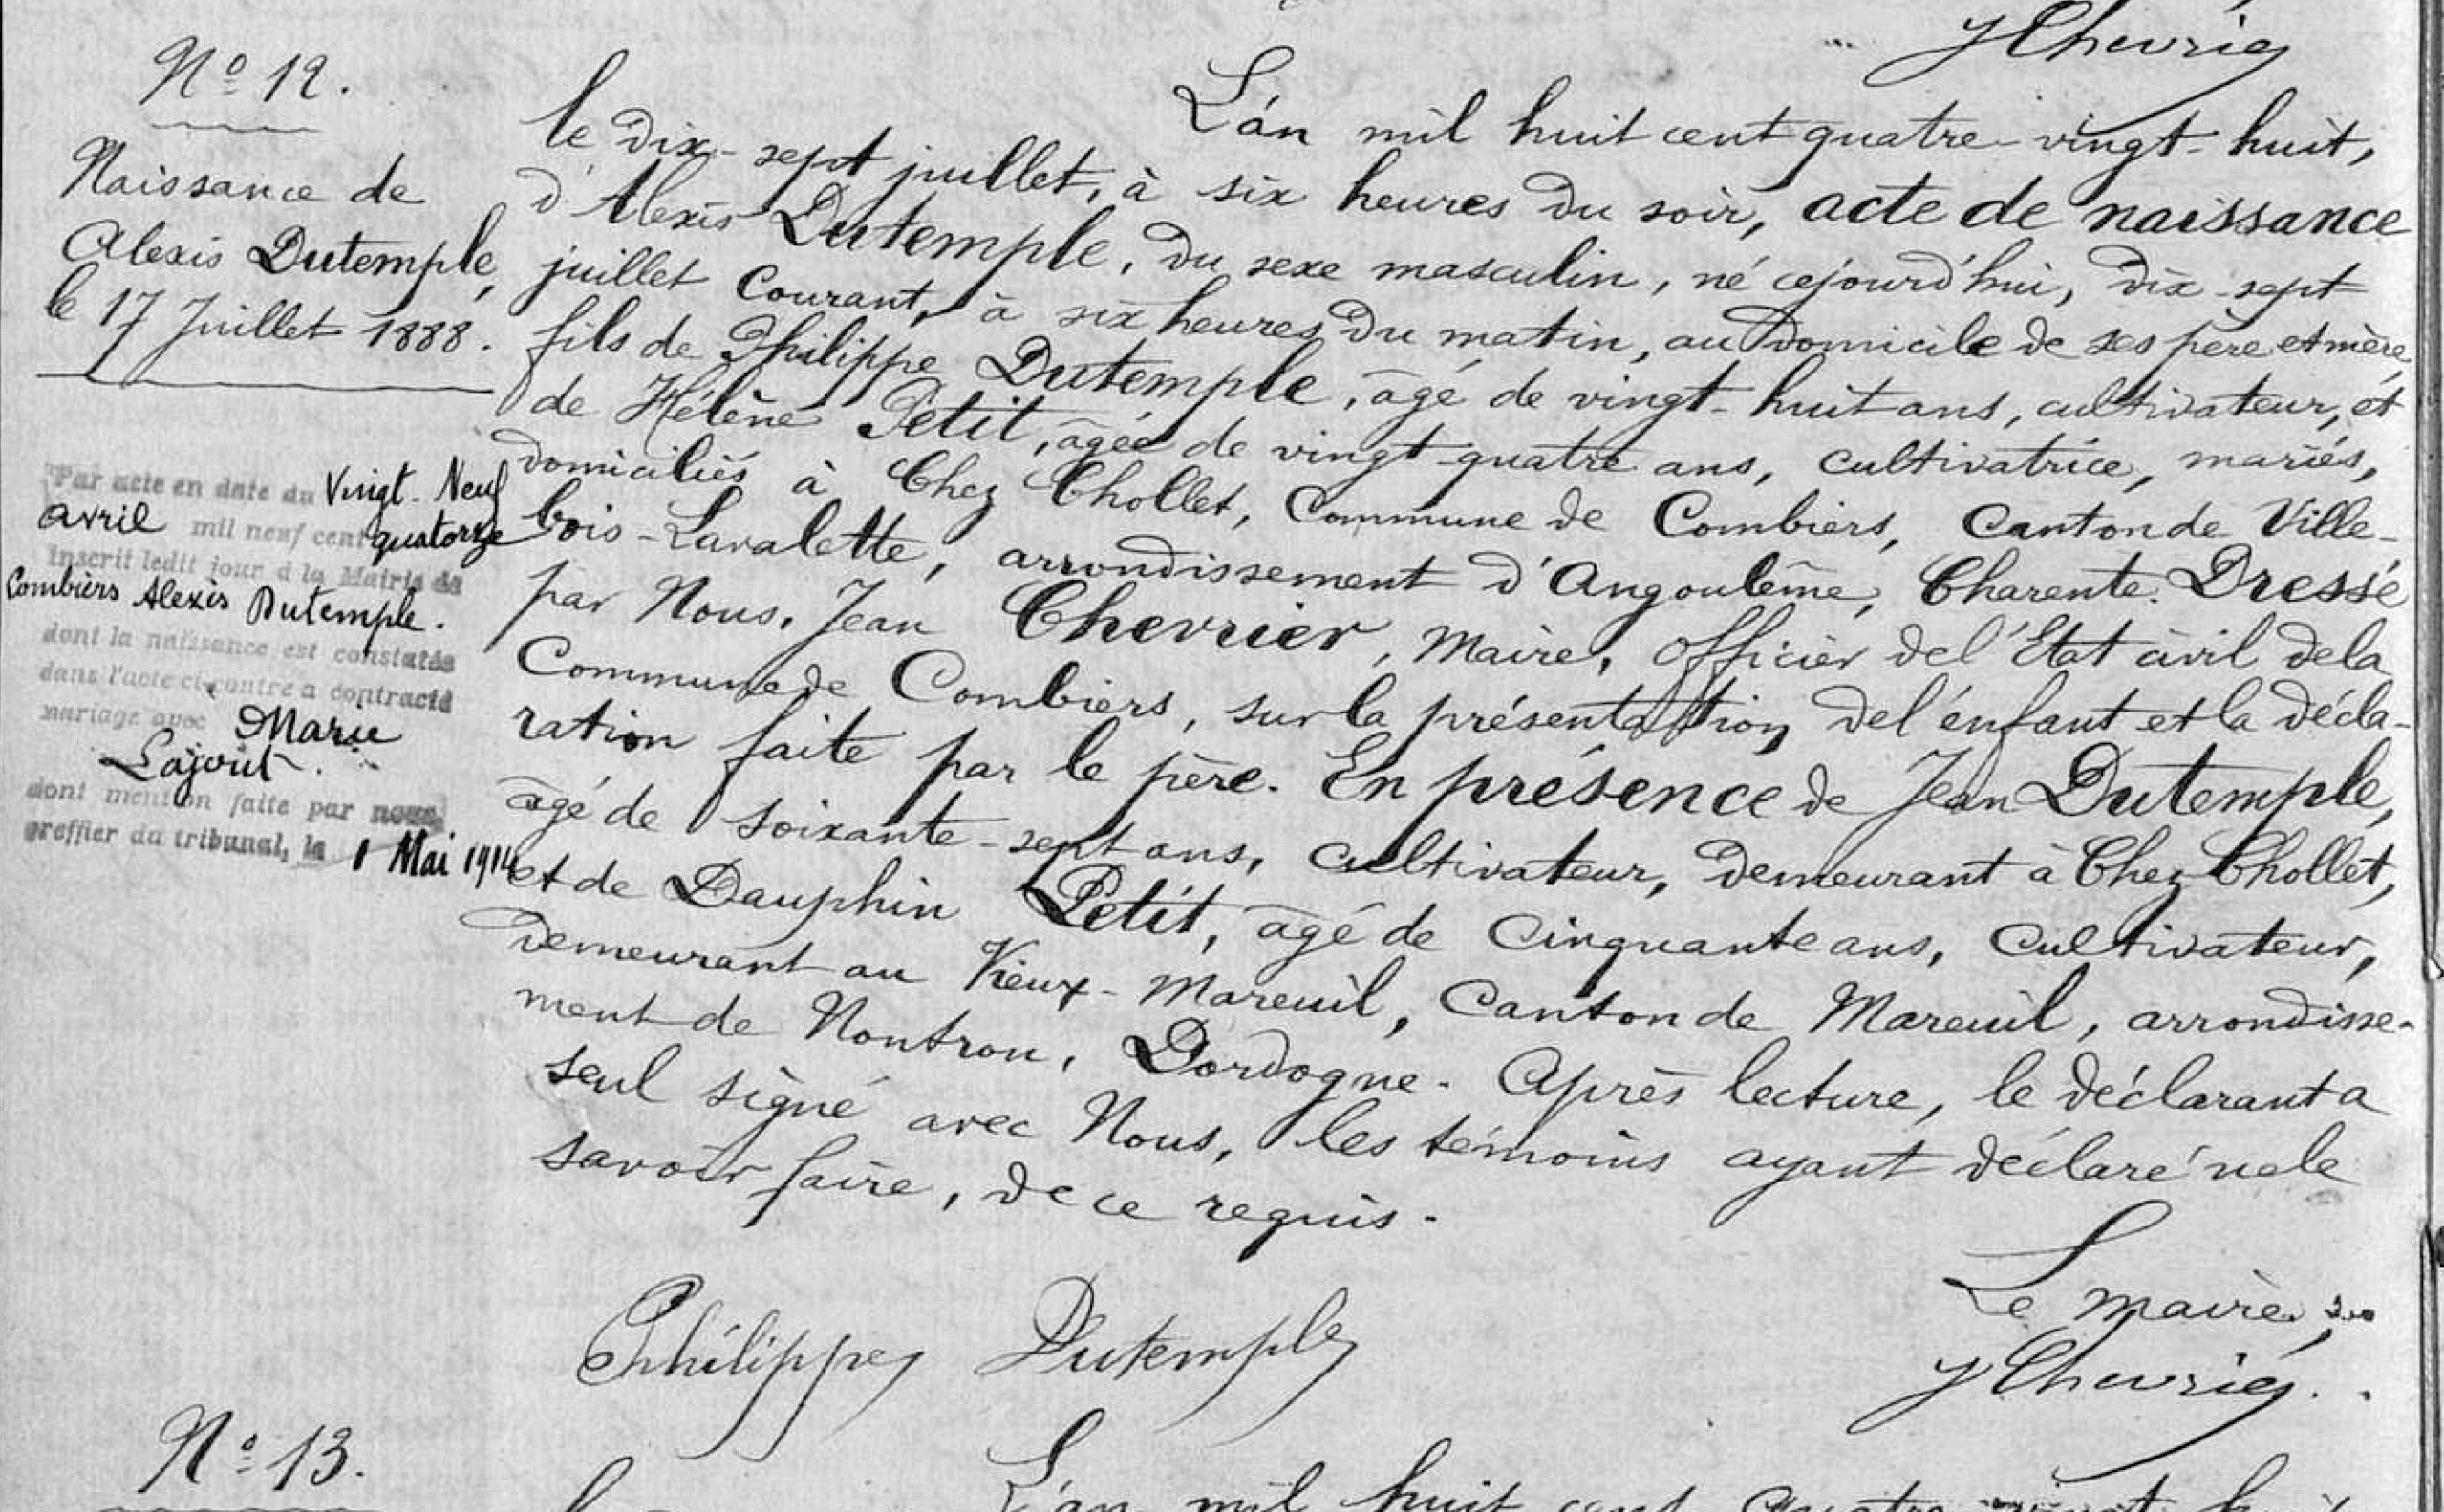 J Chevrier
N° 12.
Naissance de
Alexis Dutemple,
le 17 Juillet 1888.
Par acte en date du Vingt-Neuf
avril mil neuf cent quatorze
inscrit ledit jour à la Mairie de
Combiers Alexis Dutemple.
dont la naissance est constatée
dans l'acte ci-contre a contracté
mariage avec Marie
Lajout.
dont mention faite par nous
greffier du tribunal, le 1 Mai 1914
L'an mil huit cent quatre-vingt-huit,
le dix-sept juillet, à six heures du soir, acte de naissance
d'Alexis Dutemple, du sexe masculin, né cejourd'hui, dix-sept
juillet courant, à six heures du matin, au domicile de ses père et mère,
fils de Philippe Dutemple, âgé de vingt-huit ans, cultivateur, et
de Hélène Petit, âgée de vingt-quatre ans, cultivatrice, mariés,
domiciliés à Chez Chollet, Commune de Combiers, Canton de Ville-
bois-Lavalette, arrondissement d'Angoulême, Charente. Dressé
par Nous, Jean Chevrier, Maire, Officier de l'Etat civil de la
Commune de Combiers, sur la présentation de l'enfant et la décla-
ration faite par le père. En présence de Jean Dutemple,
âgé de soixante-sept ans, cultivateur, demeurant à Chez Chollet,
et de Dauphin Petit, âgé de cinquante ans, cultivateur,
demeurant au Vieux-Mareuil, Canton de Mareuil, arrondisse-
ment de Nontron, Dordogne. Après lecture, le déclarant a
seul signé avec Nous, les témoins ayant déclaré ne le
savoir faire, de ce requis.
Le maire,
Philippe Dutemple
J Chevrier.
N° 13.
L'an mil huit cent quatre-vingt-huit